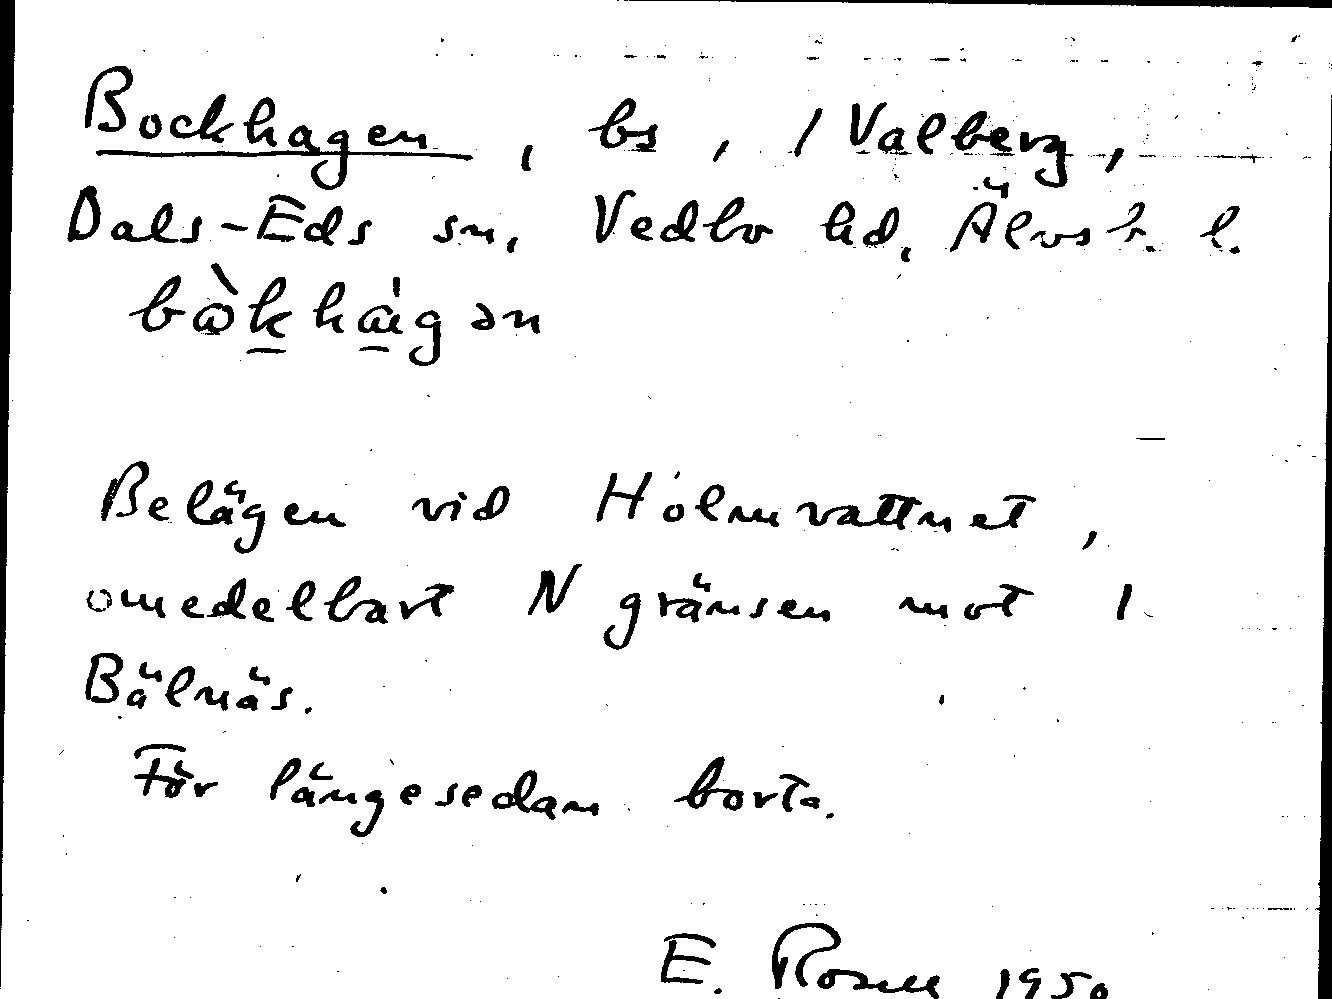 Bockhagen, bs, / Valberg,
Dals-Eds sn, Vedbo hd, Älvsb. l.
Belägen vid Holmvattnet,
omedelbart N gränsen mot 1
Bälnäs.
För längesedan borta.
E. Rosell 1950